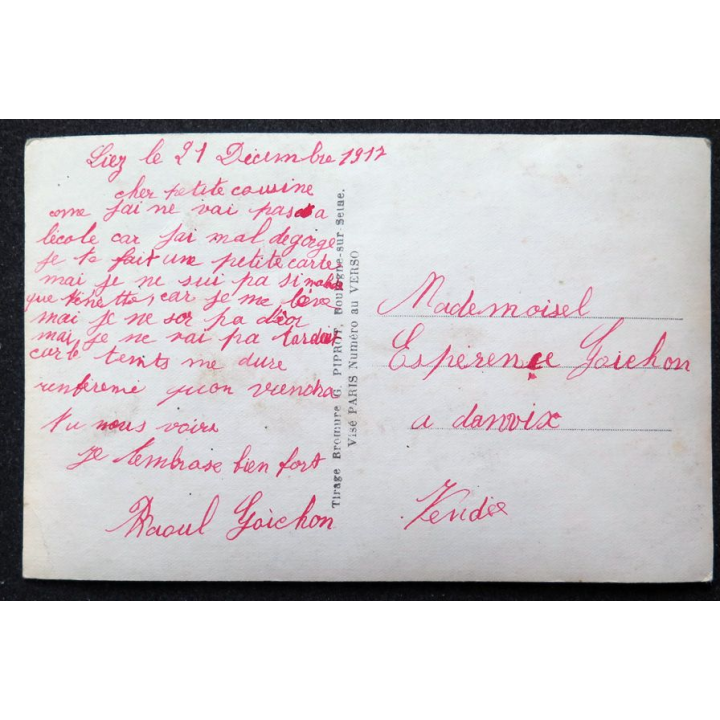 Liez le 21 Décembre 1917
cher petite cousine
come jai ne vai pas a
lécole car jai mal degorge
je te fait une petite carte
mai je ne sui pa si malade
que Vene car je me lève
mai je ne sor pa déor
mai je ne vai pa tarder
car le tents me dure
renfermé quon viendra
tu nous voire
je tembrase bien fort
Raoul Goichon
Tirage Bromure G. PIPROT, Boulogne-sur Seine.
Visé PARIS Numéro au VERSO
Mademoisel
Espérence Goichon
a danvix
Vendée